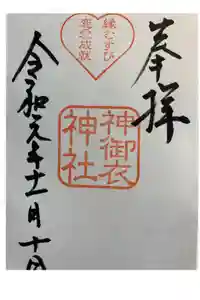 奉拝
縁むすび
恋愛成就
神御衣
神社
令和元年十一月十日